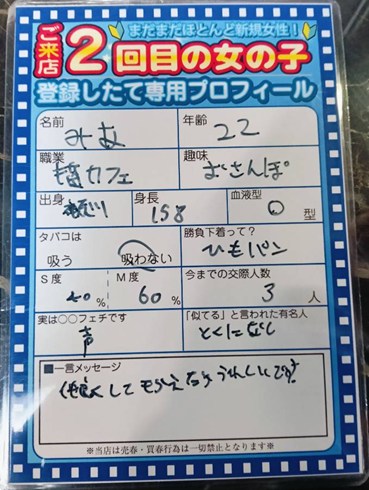 まだまだほとんど新規女性!
ご来店2回目の女の子
登録したて専用プロフィール
名前 みあ
年齢 22
職業 カフェ
趣味 おさんぽ
出身
身長 158
血液型 O 型
タバコは 吸う 吸わない
勝負下着って? ひもパン
S度 40%
M度 60%
今までの交際人数 3人
実は○○フェチです 声
「似てる」と言われた有名人 とくになし
■一言メッセージ
してもらえたらうれしいです!
※当店は売春・買春行為は一切禁止となります※